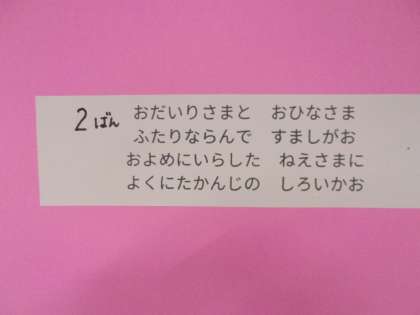 2ばん おだいりさまと　おひなさま
ふたりならんで　すましがお
およめにいらした　ねえさまに
よくにたかんじの　しろいかお